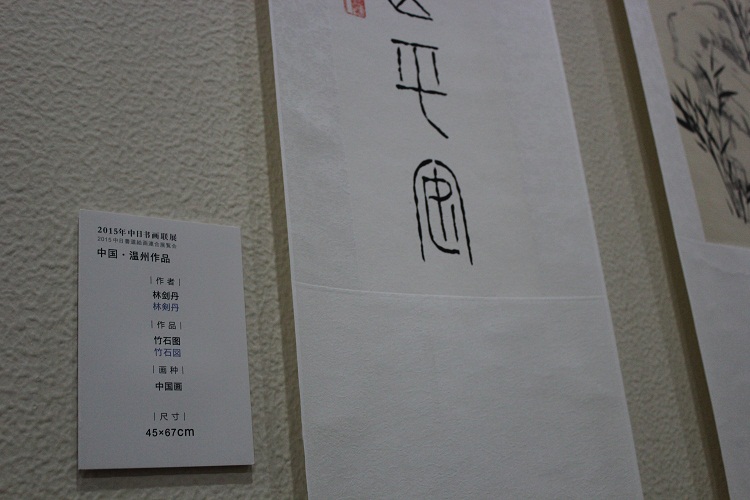 2015年中日书画联展
2015中日書道絵画連合展覧会
中国·温州作品
|作者|
林剑丹
林剣丹
|作品|
竹石图
竹石図
|画种|
中国画
|尺寸|
45×67cm
平